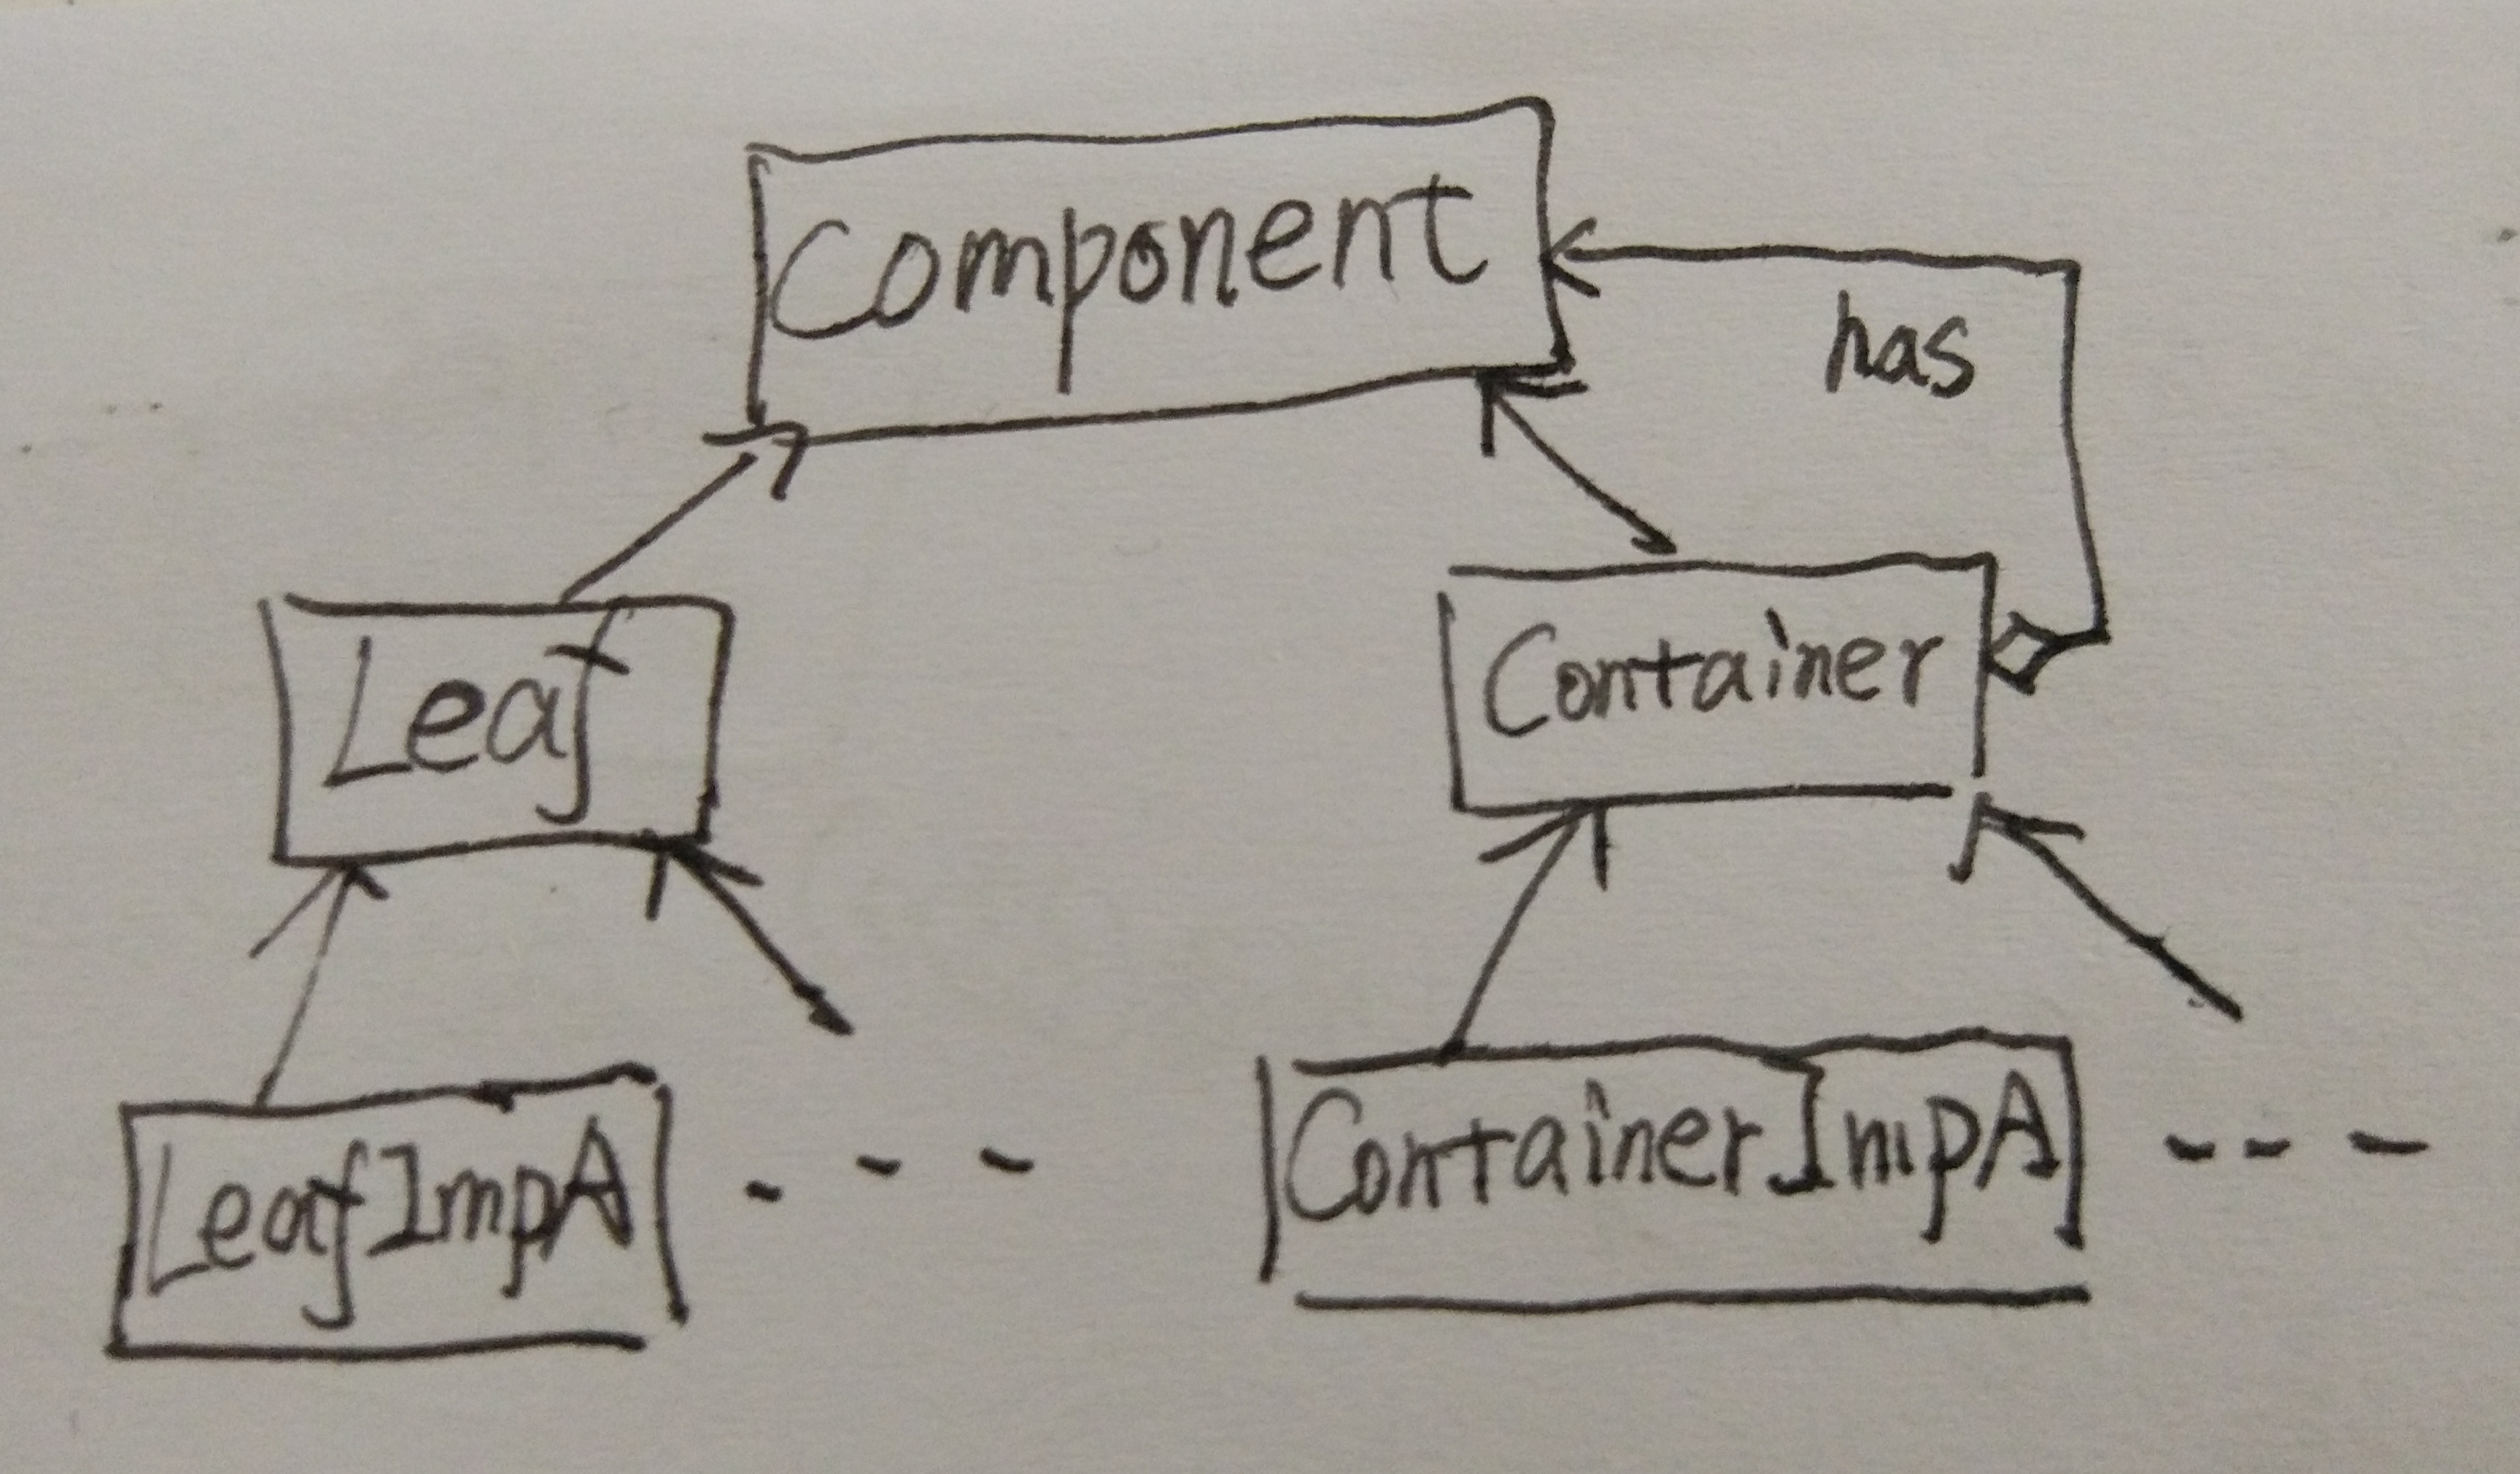 Component
has
Leaf
Container
LeafImpA
ContainerImpA